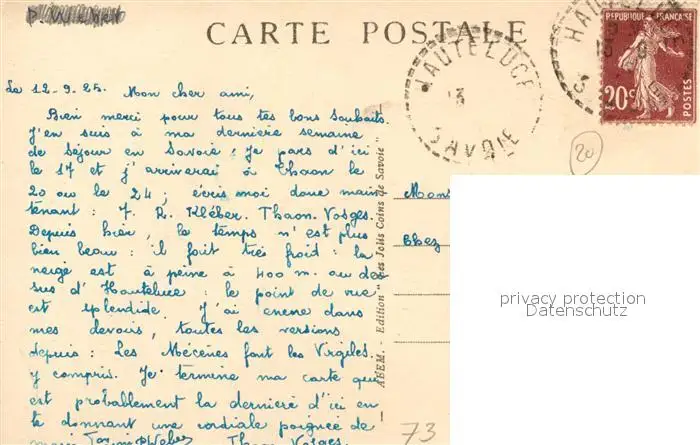 CARTE POSTALE
HAUTELUCE
SAVOIE
RÉPUBLIQUE FRANÇAISE
20c
POSTES
20
Le 12-9-25. Mon cher ami,
Bien merci pour tous tes bons souhaits.
J'en suis à ma dernière semaine
de séjour en Savoie. Je pars d'ici
le 17 et j'arriverai à Thaon le
20 ou le 24 ; écris moi donc main
tenant : 7. R. Kléber. Thaon. Vosges.
Depuis hier, le temps n'est plus
bien beau : il fait très froid : la
neige est à peine à 400 m. au des
sus d'Hauteluce : le point de vue
est splendide. J'ai encore dans
mes devoirs, toutes les versions
depuis : Les Mécènes font les Virgiles.
y compris. Je termine ma carte qui
est probablement la dernière d'ici en
te donnant une cordiale poignée de
Thaon Vosges.
ABEM. - Edition "Les Jolis Coins de Savoie"
Mons
Chez
privacy protection
Datenschutz
73